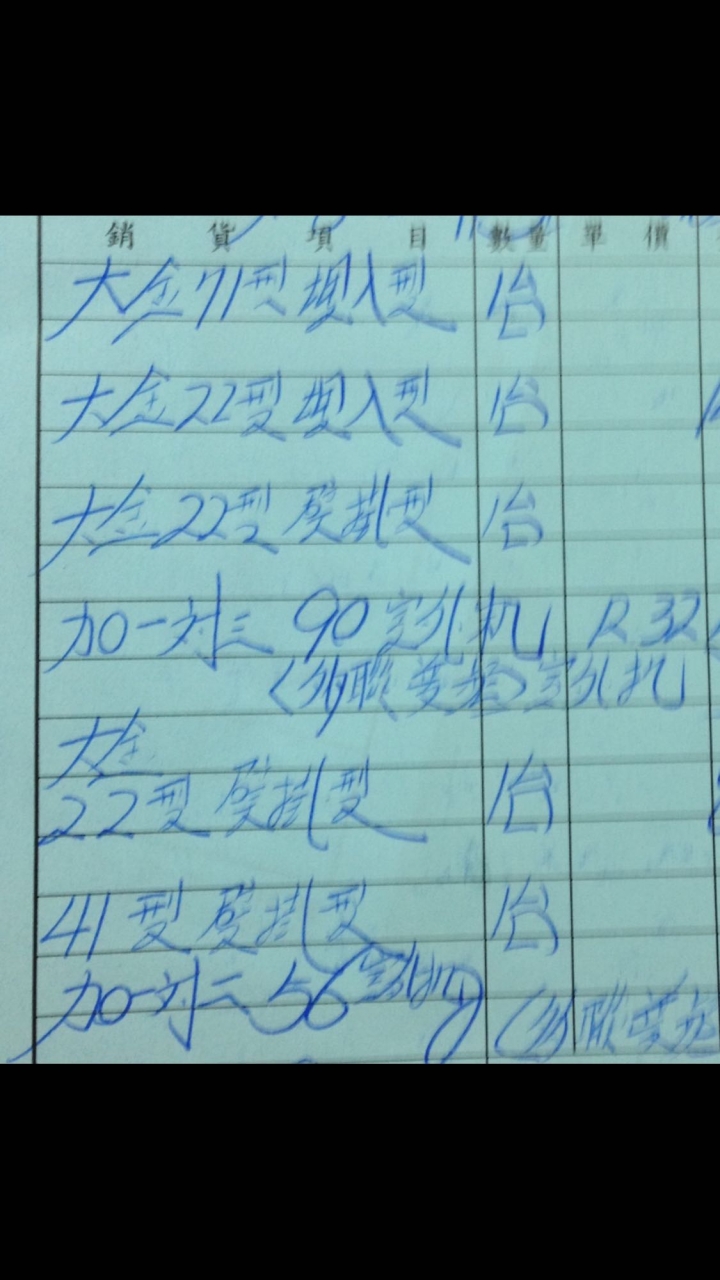 銷貨項目 數量 單價
大金71型 埧入型 1台
大金22型 埧入型 1台
大金22型 壁掛型 1台
加一対三 90室外机 R32
(多聯變頻)室外机
大金
22型 壁掛型 1台
41型 壁掛型 1台
加一対二 56室外机 (多聯變頻